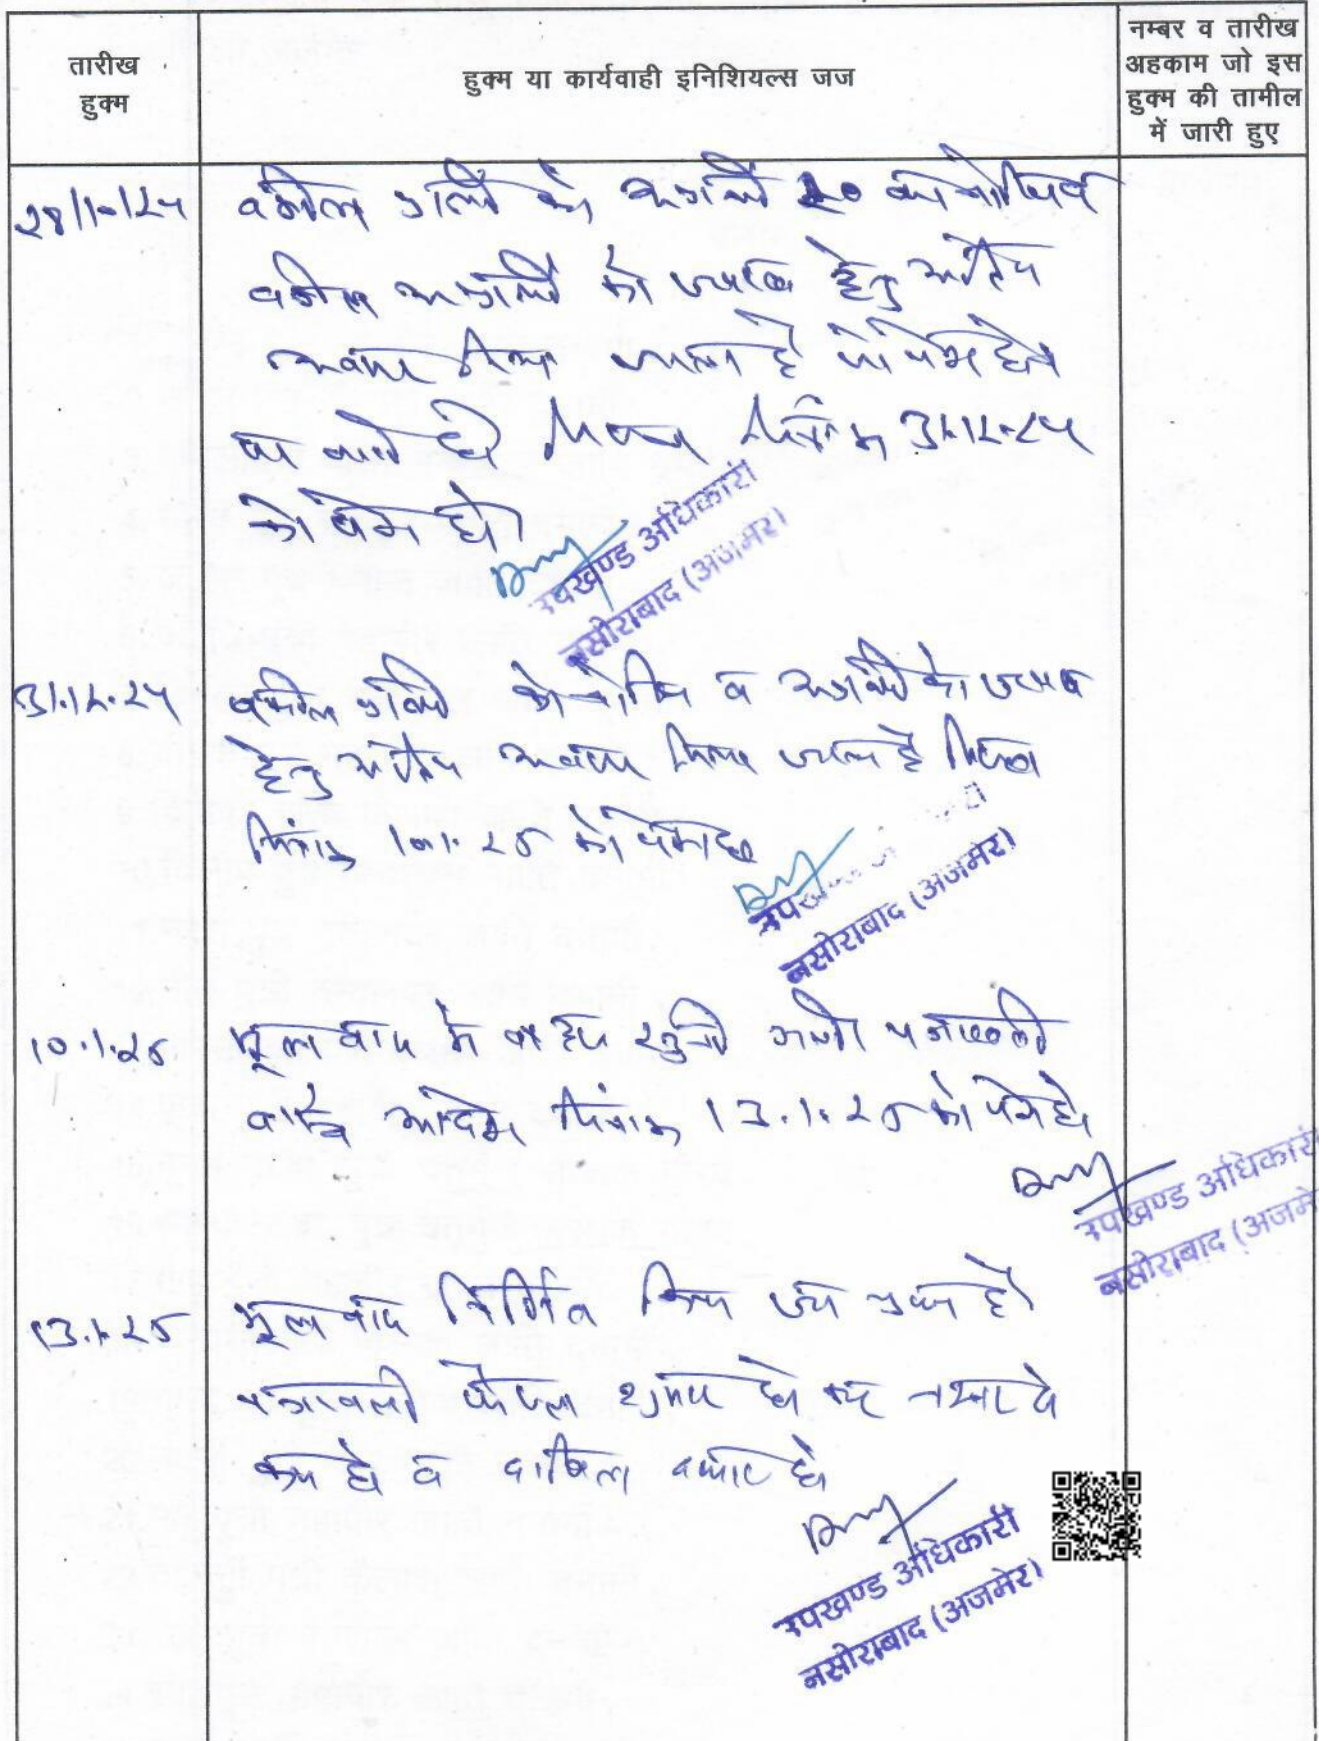 तारीख
हुक्म
हुक्म या कार्यवाही इनिशियल्स जज
नम्बर व तारीख
अहकाम जो इस
हुक्म की तामील
में जारी हुए
वकील प्रार्थी को
वकील अप्रार्थी को जवाब हेतु अंतिम
अवसर दिया जाता है
31.12.24
को पेश हो।
उपखण्ड अधिकारी
नसीराबाद (अजमेर)
31.12.24 वकील प्रार्थी को नोटिस व अप्रार्थी को जवाब
हेतु अंतिम अवसर दिया जाता है
दिनांक 10.1.25 को पेश हो
नसीराबाद (अजमेर)
10.1.25 मूल वाद में बहस सुनी गयी पत्रावली
वास्ते आदेश दिनांक 13.1.25 को पेश हो
उपखण्ड अधिकारी
नसीराबाद (अजमे
13.1.25 मूल वाद निर्णित किया जा चुका है
पत्रावली फैसल शुमार हो कर नम्बर से
कम हो व दाखिल दफ्तर हो
उपखण्ड अधिकारी
नसीराबाद (अजमेर)